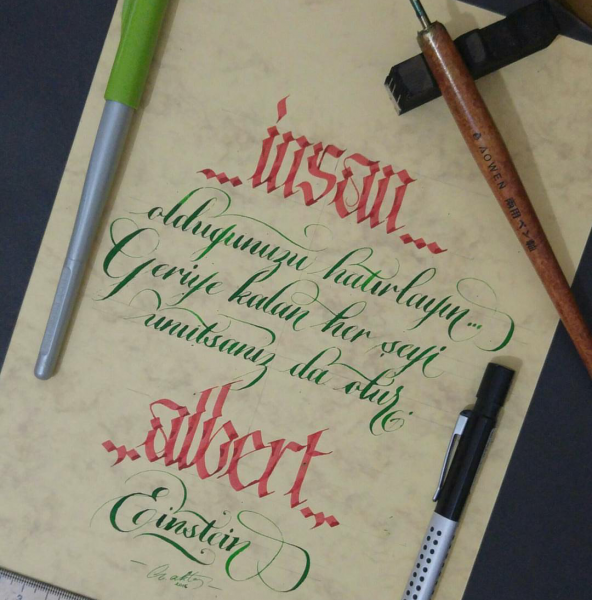 ...insan...
olduğunuzu hatırlayın...
Geriye kalan her şeyi
unutsanız da olur.
...albert...
Einstein
AOWEN